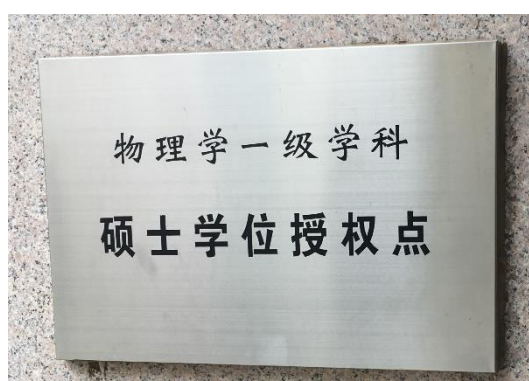 物理学一级学科
硕士学位授权点